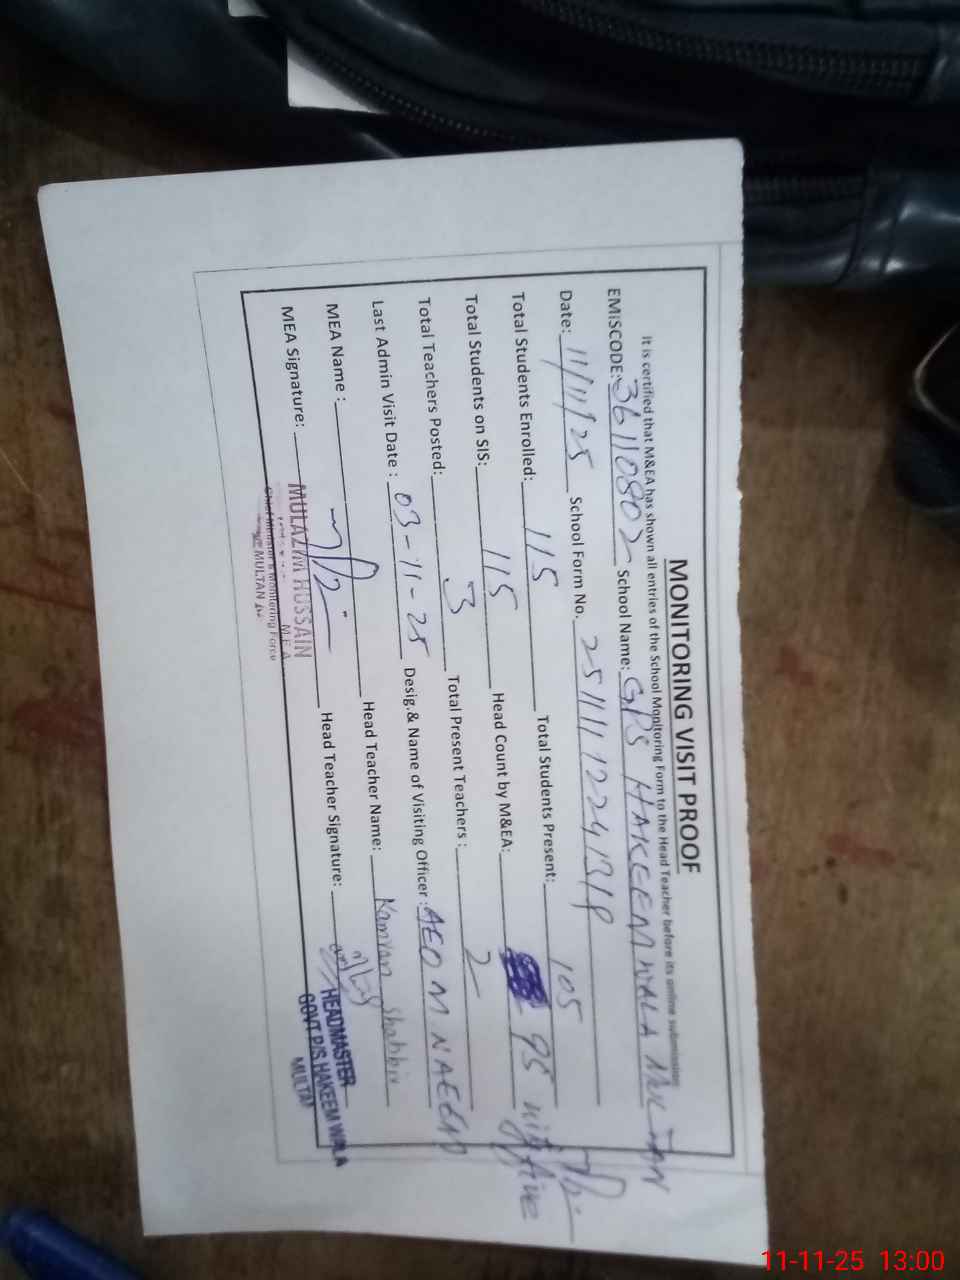 MONITORING VISIT PROOF
It is certified that M&EA has shown all entries of the School Monitoring Form to the Head Teacher before its online submission
EMISCODE: 36110802 School Name: GPS HAKEEM WALA MULTAN
Date: 11/11/25 School Form No.
Total Students Enrolled: 115 Total Students Present: 105
Total Students on SIS: 115 Head Count by M&EA: 95
Total Teachers Posted: 3 Total Present Teachers : 2
Last Admin Visit Date : 03-11-25 Desig.& Name of Visiting Officer : AEO M NAEEM
MEA Name : Head Teacher Name: Kamran Shabbir
MEA Signature: Head Teacher Signature:
MULAZIM HUSSAIN
M.E.A
Chief Minister's Monitoring Force
MULTAN
HEADMASTER
GOVT P/S HAKEEM WALA
MULTAN
11-11-25 13:00